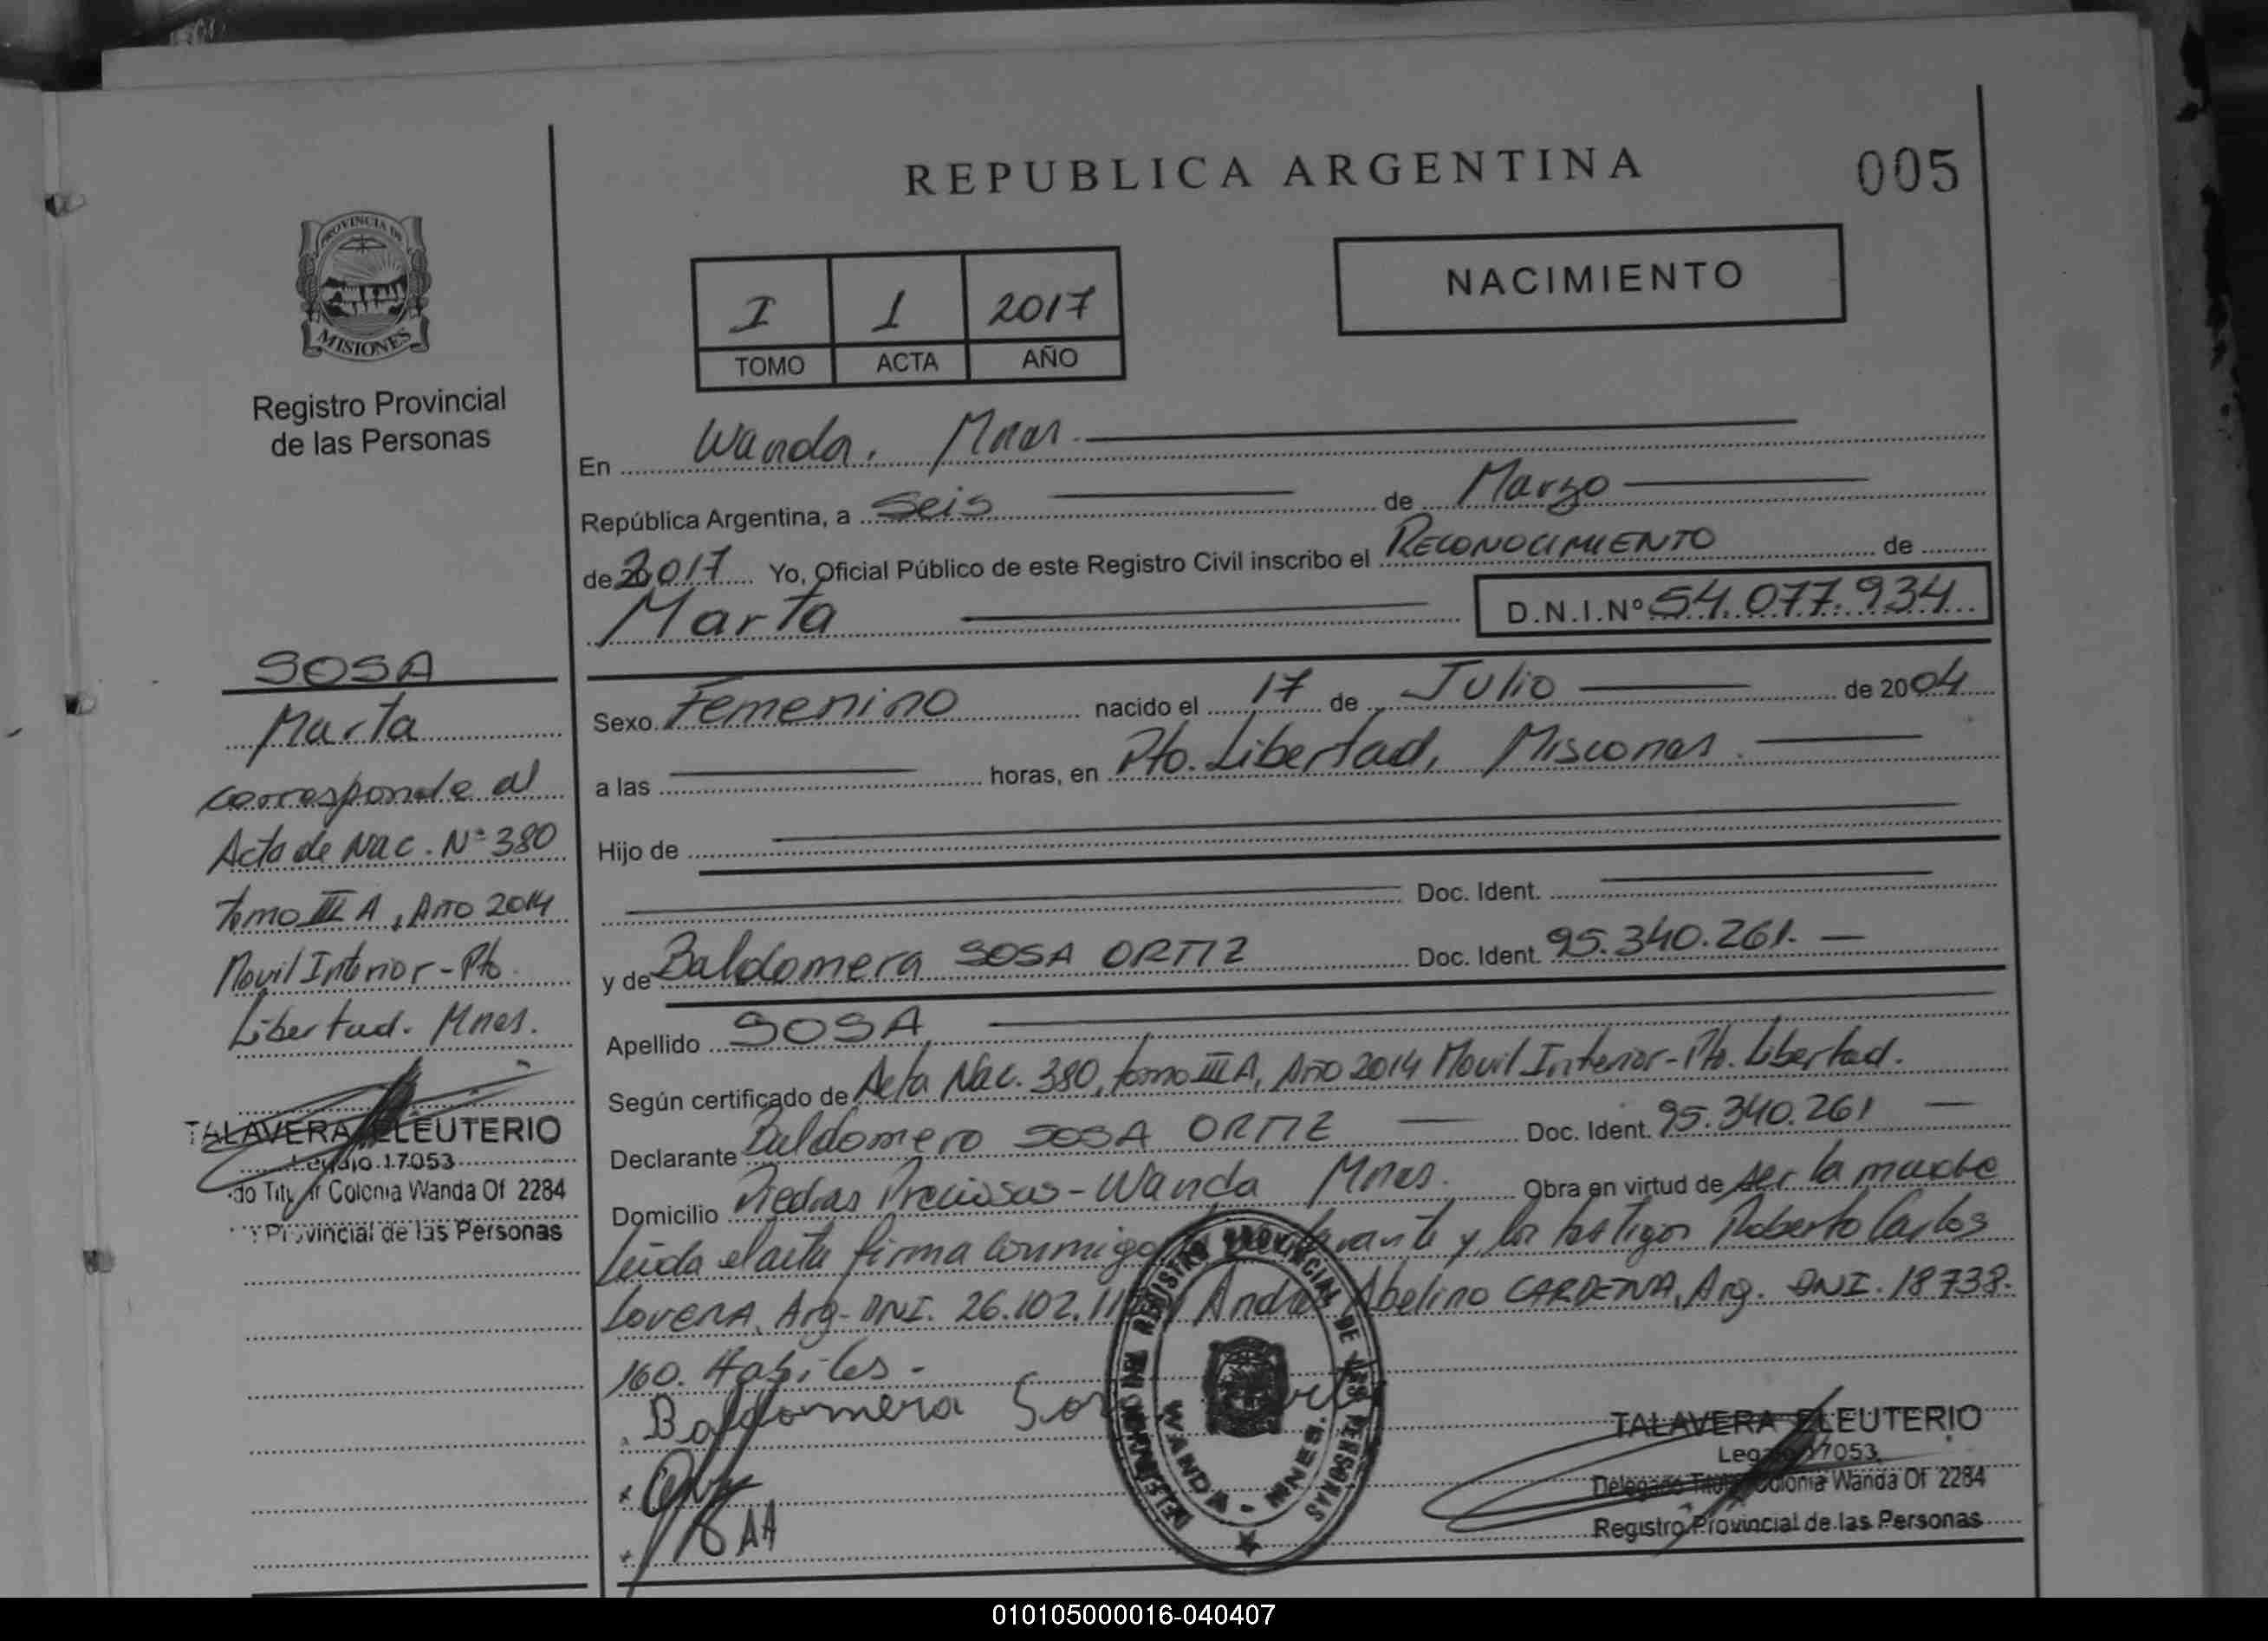 REPUBLICA ARGENTINA
005
PROVINCIA DE
MISIONES
Registro Provincial
de las Personas
NACIMIENTO
I 1 2017
TOMO ACTA AÑO
En Wanda, Mnes.
República Argentina, a Seis de Marzo
de 2017 Yo, Oficial Público de este Registro Civil inscribo el RECONOCIMIENTO de
Marta D.N.I.Nº 54.077.934
Sexo Femenino nacido el 17 de Julio de 2004
a las horas, en Pto. Libertad, Misiones.
Hijo de
Doc. Ident.
y de Baldomera SOSA ORTIZ Doc. Ident. 95.340.261.
Apellido SOSA
Según certificado de Acta Nac. 380, tomo III A, Año 2014 Movil Interior-Pto. Libertad.
Declarante Baldomero SOSA ORTIZ Doc. Ident. 95.340.261
Domicilio Piedras Preciosas-Wanda Mnes. Obra en virtud de ser la madre
Leida el acta firma conmigo y los testigos Roberto Carlos
LOVERA, Arg-DNI. 26.102. Andres Abelino CARDENA, Arg. DNI. 18.738.
160. Habiles-
Baldomera
SOSA
Marta
corresponde al
Acta de Nac. Nº 380
tomo III A, Año 2014
Movil Interior-Pto.
Libertad. Mnes.
TALAVERA ELEUTERIO
Legajo 17053
do Titular Colonia Wanda Of 2284
Provincial de las Personas
REGISTRO PROVINCIAL DE LAS PERSONAS
WANDA - MNES.
TALAVERA ELEUTERIO
Legajo 17053
Delegado Titular Colonia Wanda Of 2284
Registro Provincial de las Personas
010105000016-040407